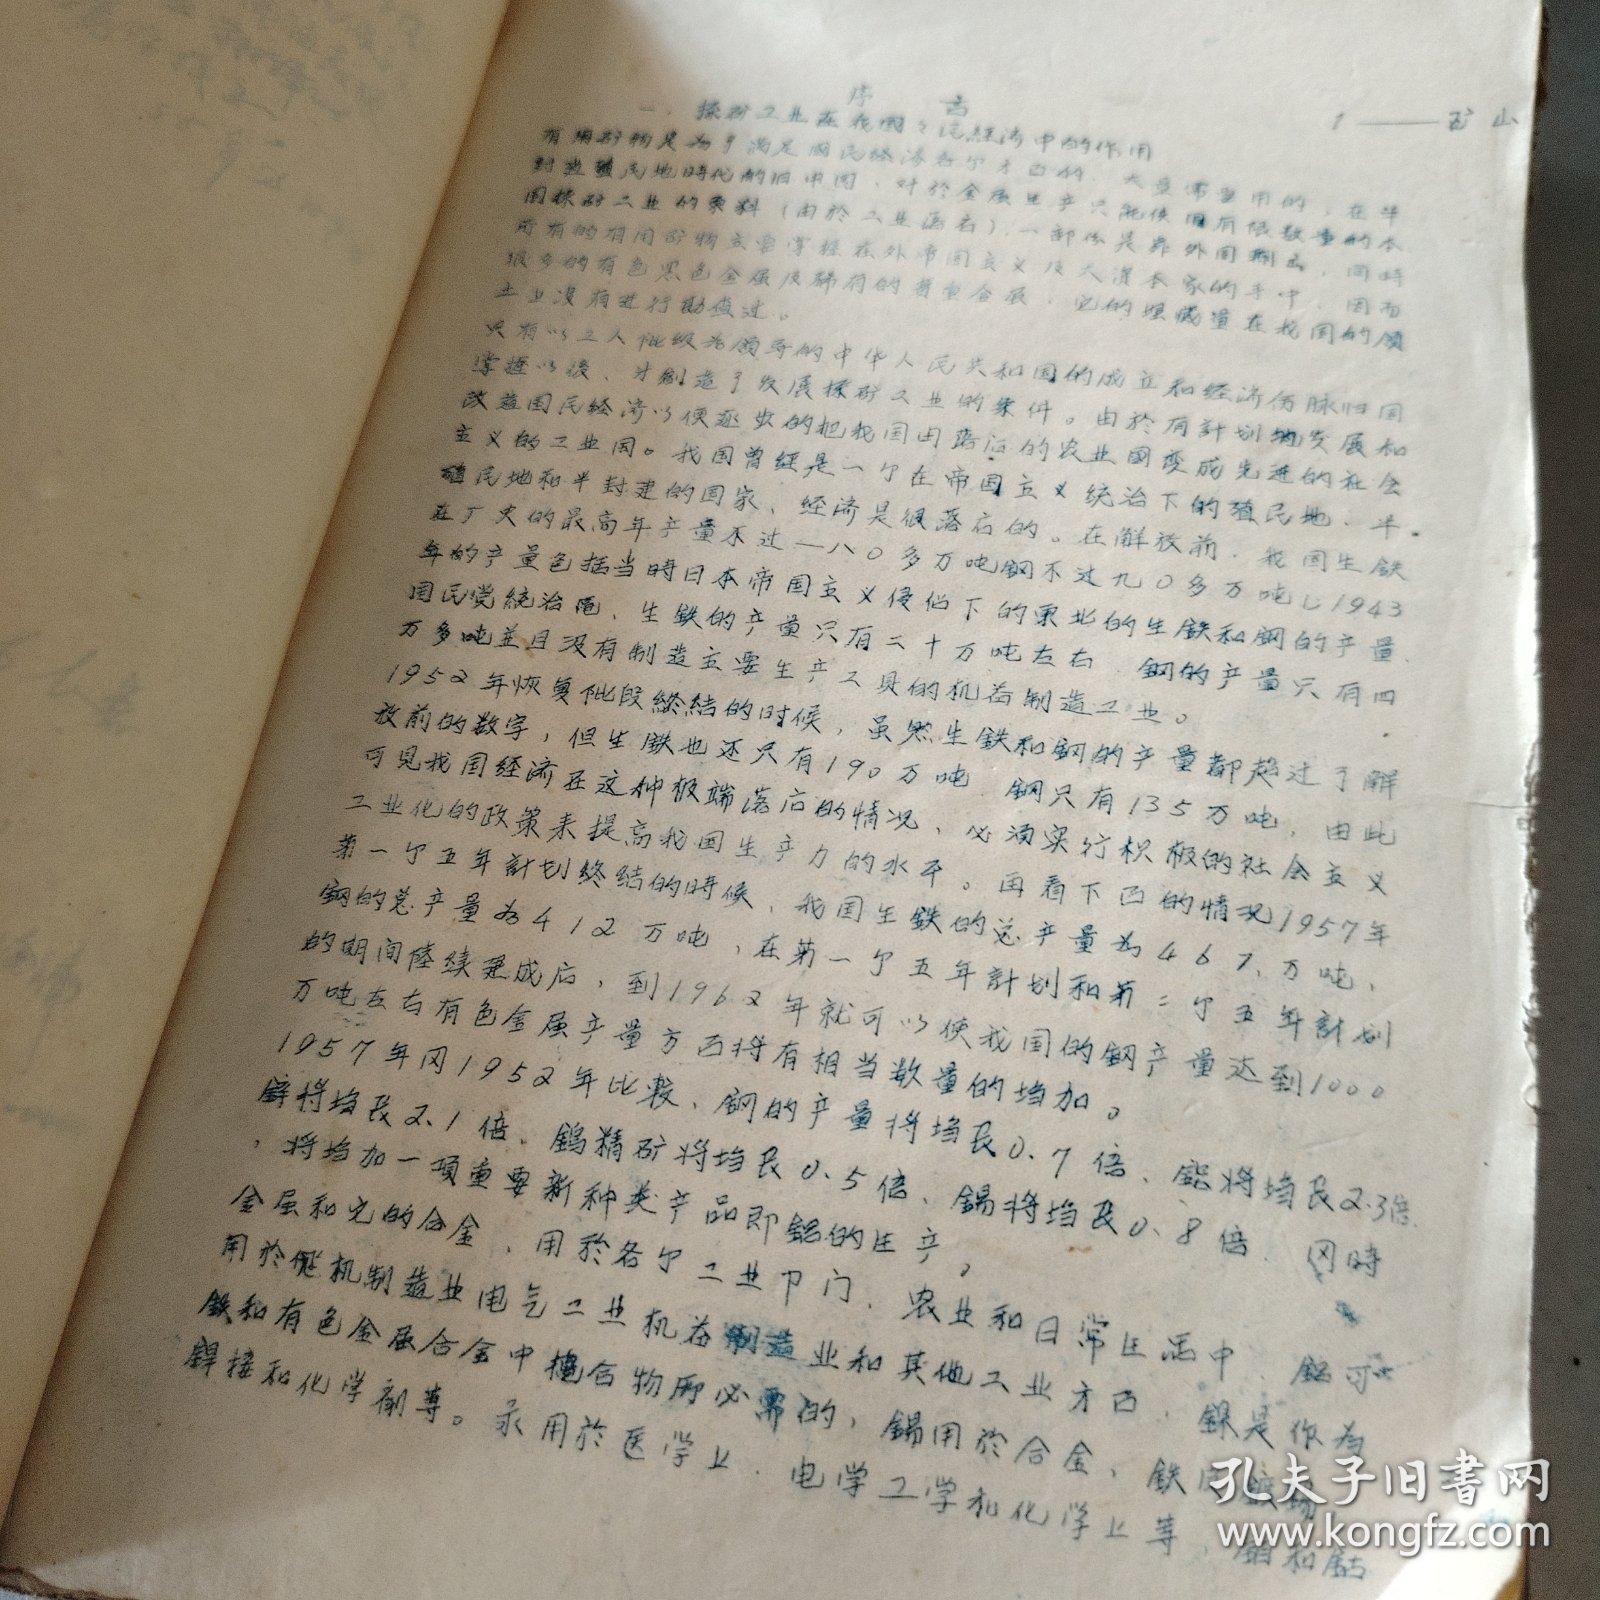 序 言
1 —— 矿 山
一、採矿工业在我国々民经济中的作用
有用矿物是为了满足国民经济各个方面的、大量需要用的、在半
封建殖民地時代的旧中国、对於金属生产只能使用有限数量的本
国採矿工业的原料（由於工业落后）、一部份是靠外国制品、同時
所有的有用矿物主要掌握在外帝国主义及大资本家的手中、因而
很多的有色黑色金属及稀有的贵重金属、它的埋藏量在我国的领
土上没有进行勘查过。
只有以工人阶级为领导的中华人民共和国的成立和经济命脉归国
掌握以後、才創造了发展採矿工业的条件。由於有計划地发展和
改造国民经济以便逐步的把我国由落后的农业国变成先进的社会
主义的工业国。我国曾经是一个在帝国主义统治下的殖民地、半
殖民地和半封建的国家、经济是很落后的。在解放前、我国生鉄
在历史的最高年产量不过一八〇多万吨鋼不过九〇多万吨じ1943
年的产量包括当時日本帝国主义侵佔下的東北的生鉄和鋼的产量
国民党統治區、生鉄的产量只有二十万吨左右、鋼的产量只有四
万多吨並且没有制造主要生产工具的机器制造工业。
1952年恢复阶段終結的时候，虽然生鉄和鋼的产量都超过了解
放前的数字，但生鉄也还只有190万吨、鋼只有135万吨，由此
可見我国经济在这种极端落后的情况、必须实行积极的社会主义
工业化的政策来提高我国生产力的水平。再看下面的情况1957年
第一个五年計划終结的時候、我国生鉄的总产量为467、万吨、
鋼的总产量为412万吨、在第一个五年計划和第二个五年計划
的期间陸续建成后，到1962年就可以使我国的鋼产量达到1000
万吨左右有色金属产量方面将有相当数量的增加。
1957年同1952年比較、銅的产量将增長0.7倍、鉛将增長2.3倍
鋅将增長2.1倍、鎢精矿将增長0.5倍、錫将增長0.8倍、同時
，将增加一項重要新种类产品即鋁的生产。
金属和它的合金、用於各个工业部门、农业和日常生活中、鋁可
用於飛机制造业电气工业机器制造业和其他工业方面、鎳是作为
鉄和有色金属合金中構合物所必需的，錫用於合金、鉄
銲接和化学剤等。汞用於医学上、电学工学和化学上等、鉑和鈷
孔夫子旧书网
www.kongfz.com